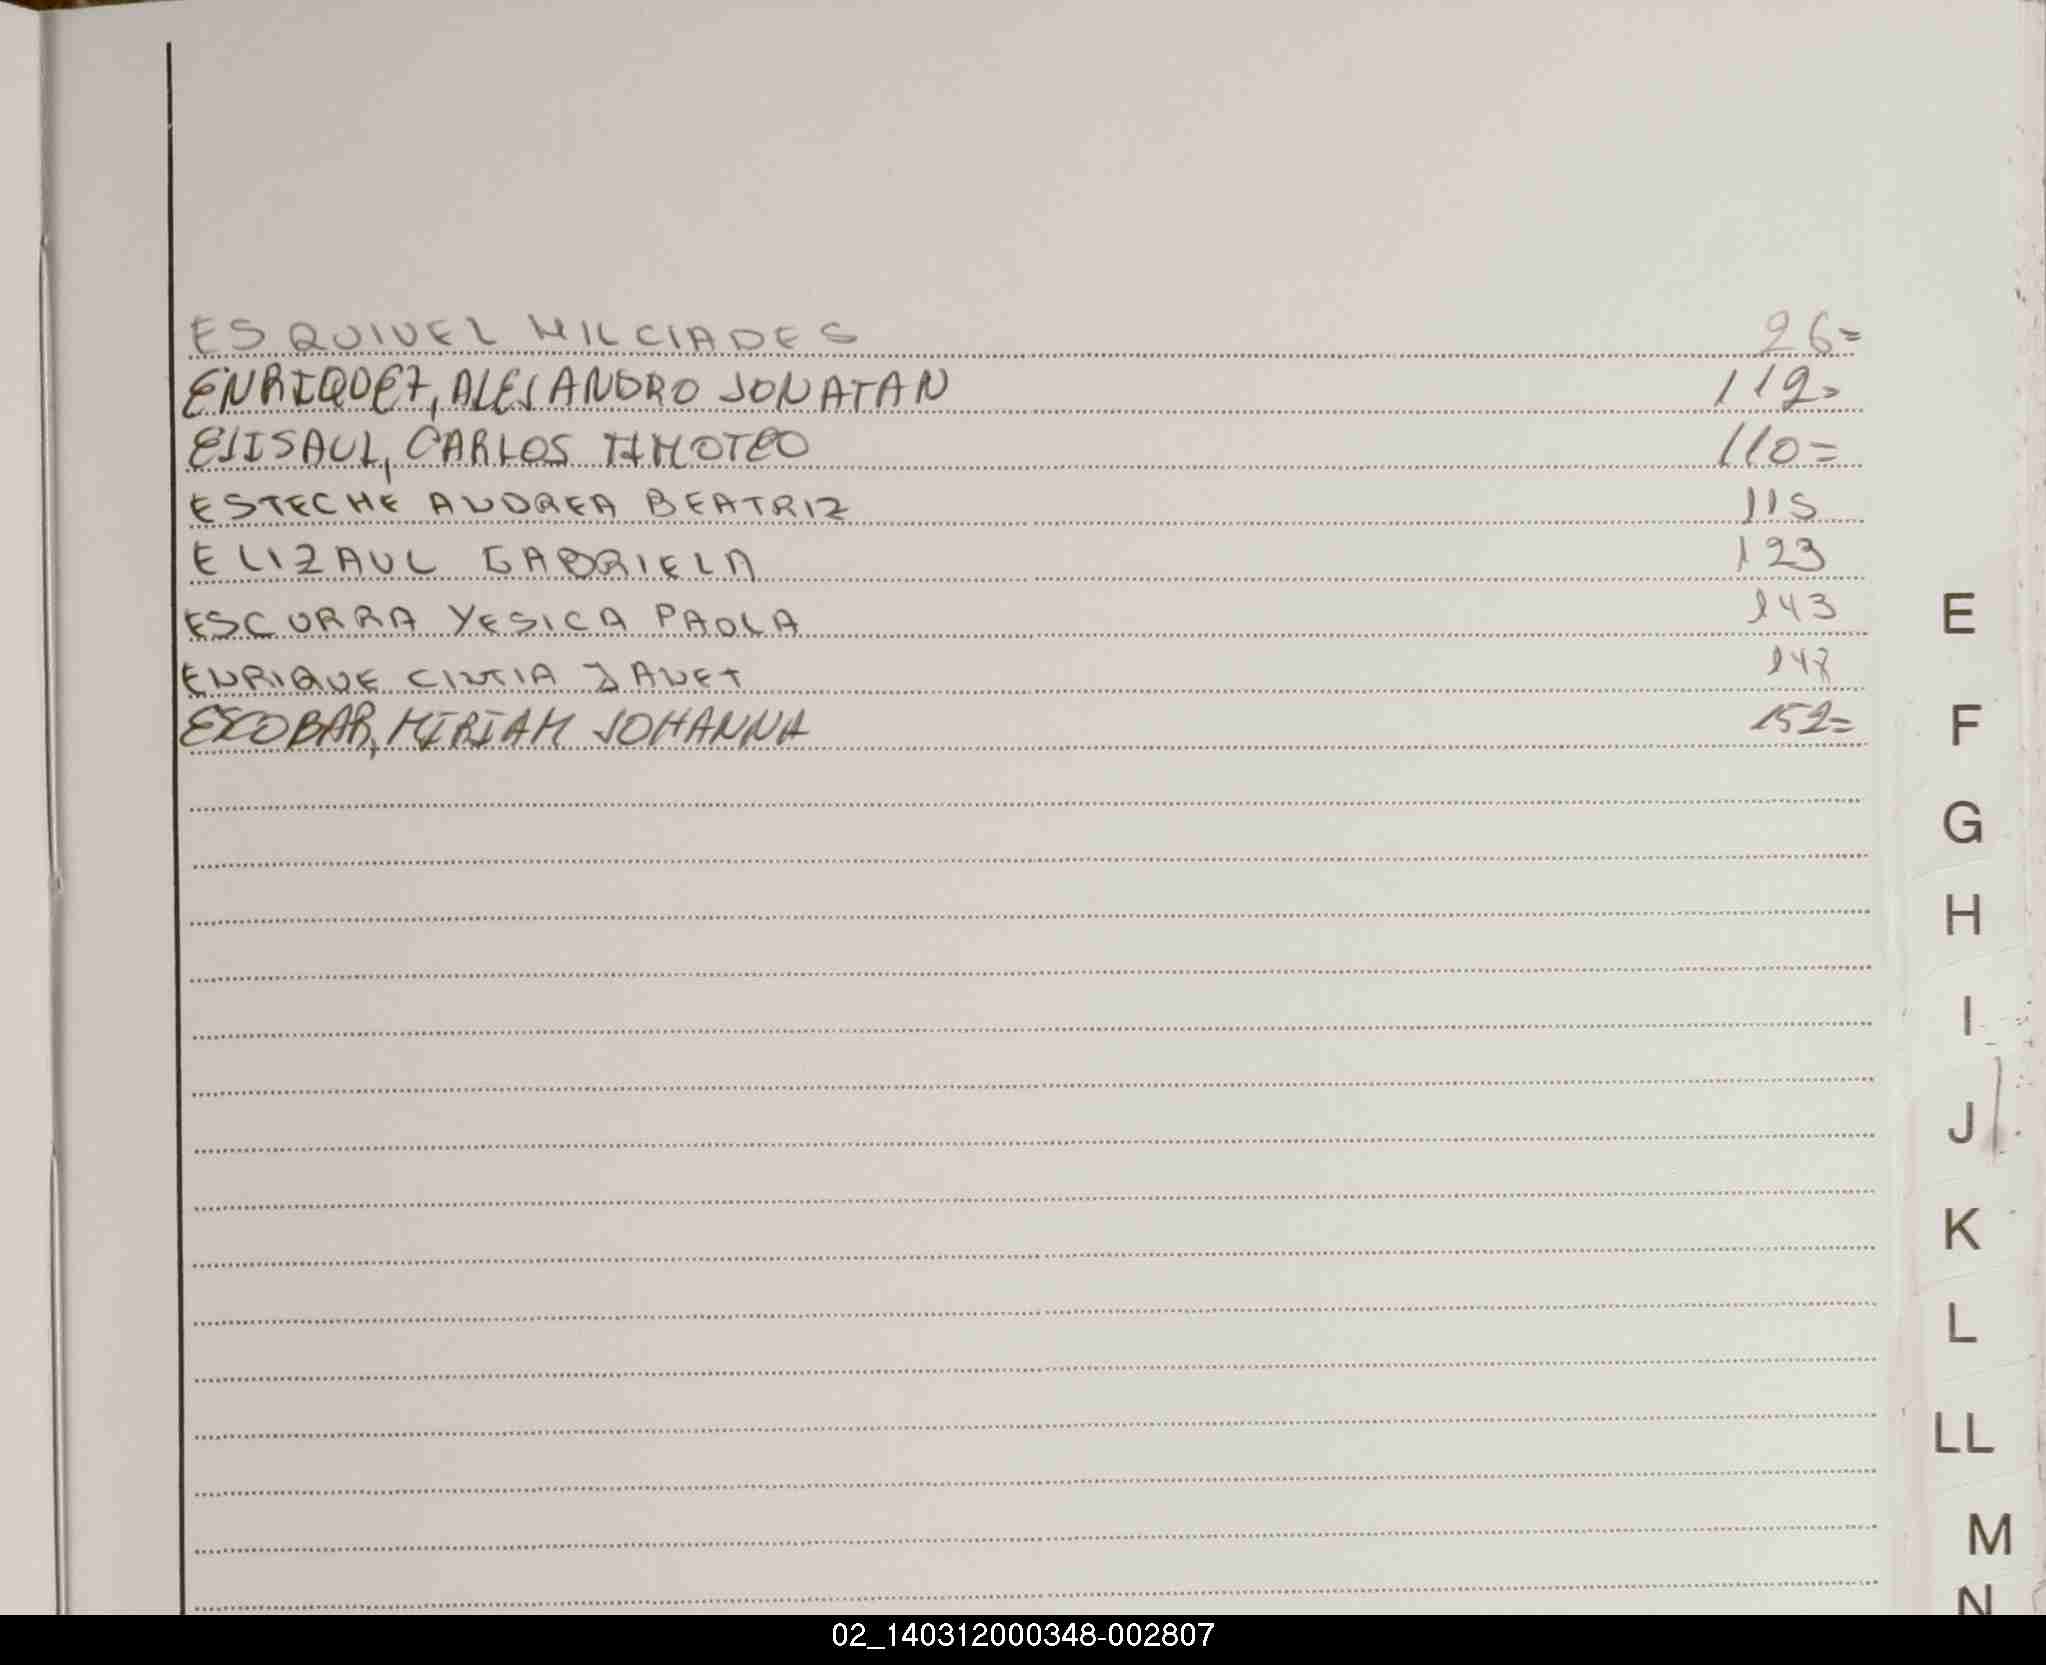 ESQUIVEL MILCIADES 26=
ENRIQUEZ, ALEJANDRO JONATAN 112=
ELISAUL, CARLOS TIMOTEO 110=
ESTECHE ANDREA BEATRIZ 115
ELIZAUL GABRIELA 123
ESCURRA YESICA PAOLA 143
ENRIQUE CINTIA JANET
ESCOBAR, MIRIAM JOHANNA 152=
E
F
G
H
I
J
K
L
LL
M
N
02_140312000348-002807